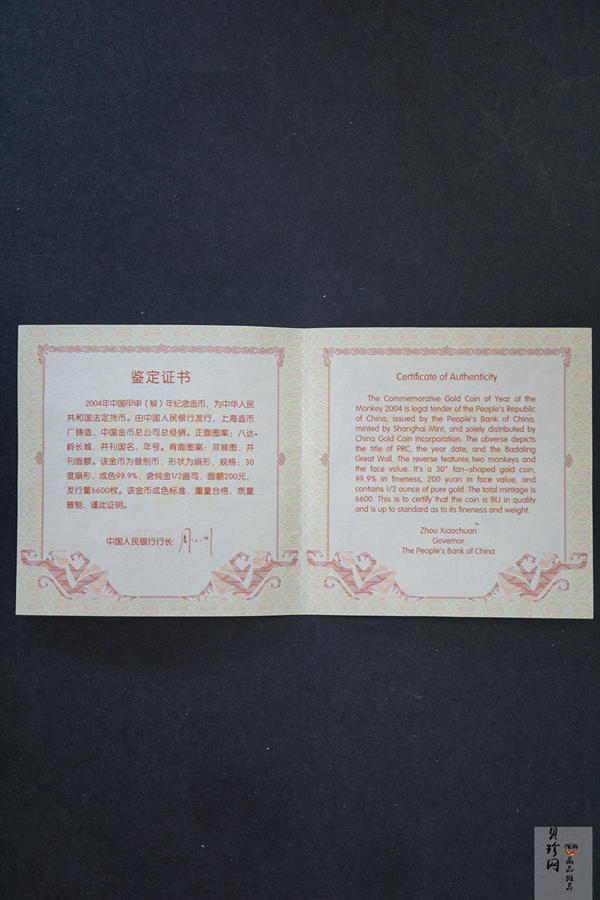 鉴定证书
2004年中国甲申（猴）年纪念金币，为中华人民
共和国法定货币。由中国人民银行发行，上海造币
厂铸造，中国金币总公司总经销。正面图案：八达
岭长城，并刊国名、年号。背面图案：双猴图，并
刊面额。该金币为普制币，形状为扇形，规格：30
度扇形，成色99.9%，含纯金1/2盎司，面额200元，
发行量6600枚。该金币成色标准，重量合格，质量
普制，谨此证明。
中国人民银行行长
Certificate of Authenticity
The Commemorative Gold Coin of Year of the
Monkey 2004 is legal tender of the People's Republic
of China, issued by the People's Bank of China,
minted by Shanghai Mint, and solely distributed by
China Gold Coin Incorporation. The obverse depicts
the title of PRC, the year date, and the Badaling
Great Wall. The reverse features two monkeys and
the face value. It's a 30° fan-shaped gold coin,
99.9% in fineness, 200 yuan in face value, and
contains 1/2 ounce of pure gold. The total mintage is
6600. This is to certify that the coin is BU in quality
and is up to standard as to its fineness and weight.
Zhou Xiaochuan
Governor
The People's Bank of China
贝珍网